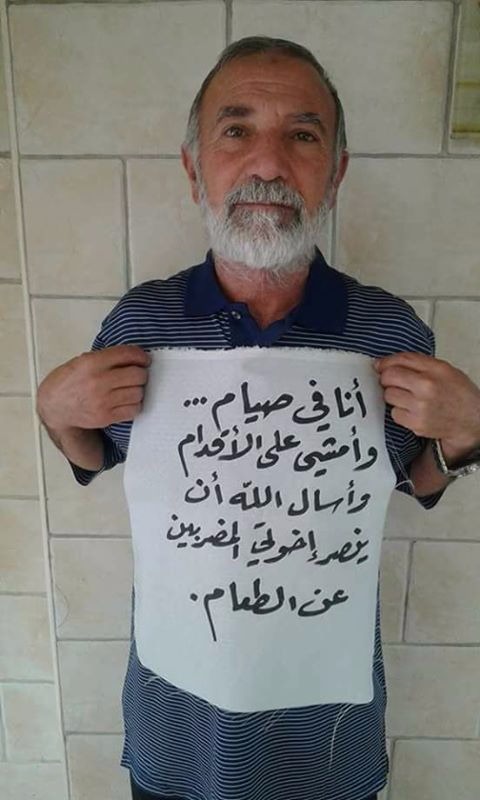 أنا في صيام ...
وأمشي على الأقدام
وأسال الله أن
ينصر إخوتي المضربين
عن الطعام .